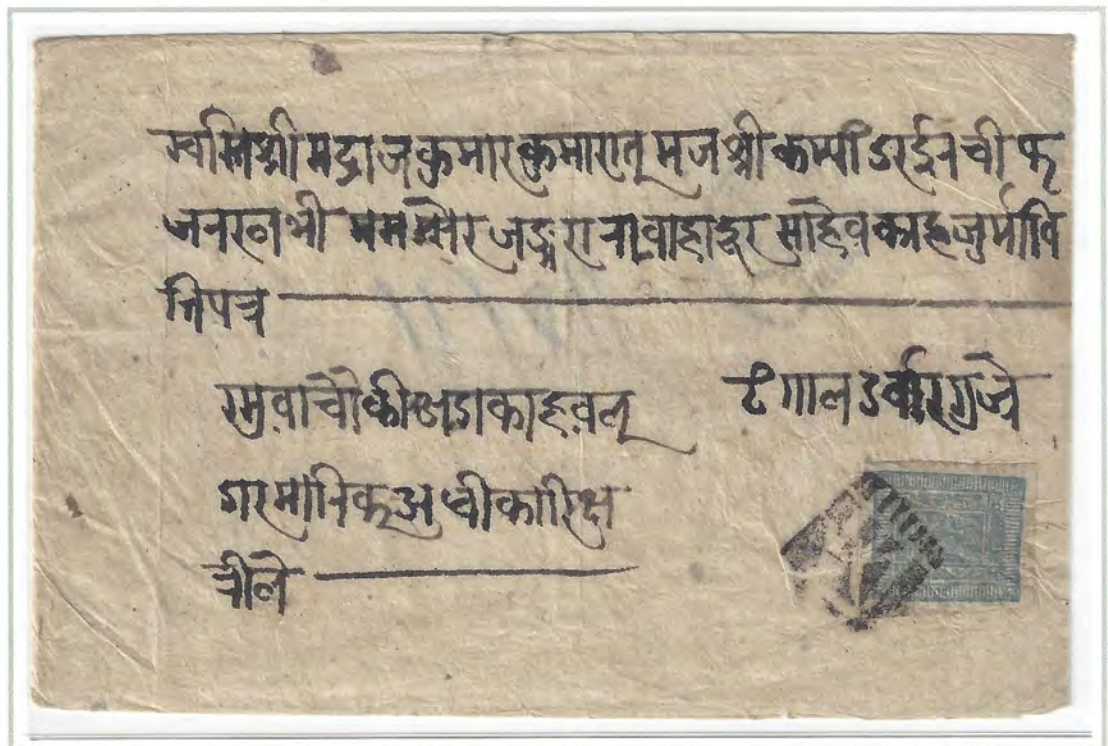 स्वस्तिश्रीमद्राजकुमारकुमारात्मजश्रीकम्यांडरईनचीफ्
जनरलश्री समसेरजङ्गरानावाहादुर साहेवकाहजुर्मावि
न्तिपत्र
रमुवाचौकीअडाकाहवल्
टंगालडर्वार
गरमानिक्अधीकारिक्ष
त्रीले